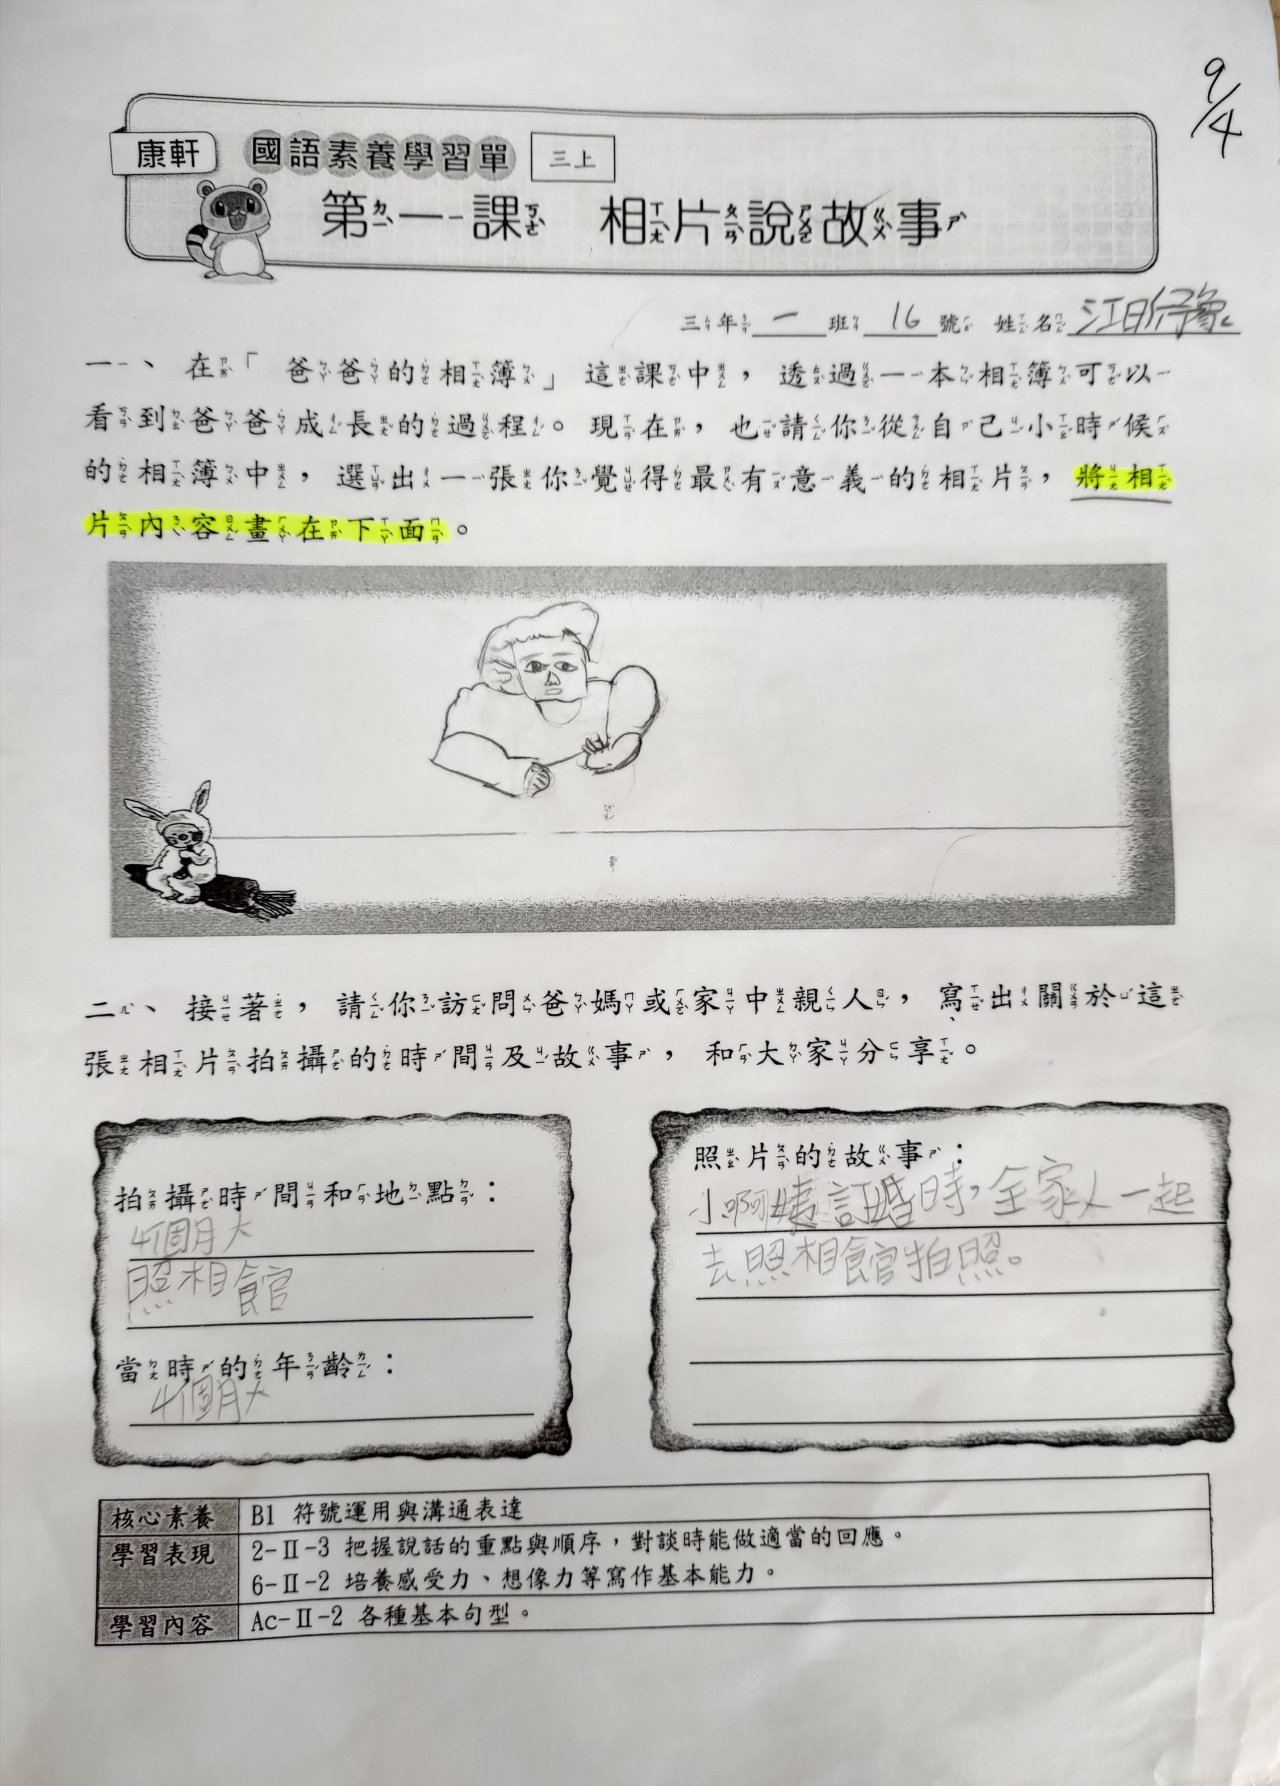 9/4
康軒 國語素養學習單 三上
第一課 相片說故事
三年一班16號 姓名江
一、在「爸爸的相簿」這課中，透過一本相簿可以
看到爸爸成長的過程。現在，也請你從自己小時候
的相簿中，選出一張你覺得最有意義的相片，將相
片內容畫在下面。
二、接著，請你訪問爸媽或家中親人，寫出關於這
張相片拍攝的時間及故事，和大家分享。
拍攝時間和地點：
4個月大
照相館
當時的年齡：
4個月大
照片的故事：
小啊姨訂婚時，全家人一起
去照相館拍照。
核心素養 B1 符號運用與溝通表達
學習表現 2-Ⅱ-3 把握說話的重點與順序，對談時能做適當的回應。
6-Ⅱ-2 培養感受力、想像力等寫作基本能力。
學習內容 Ac-Ⅱ-2 各種基本句型。